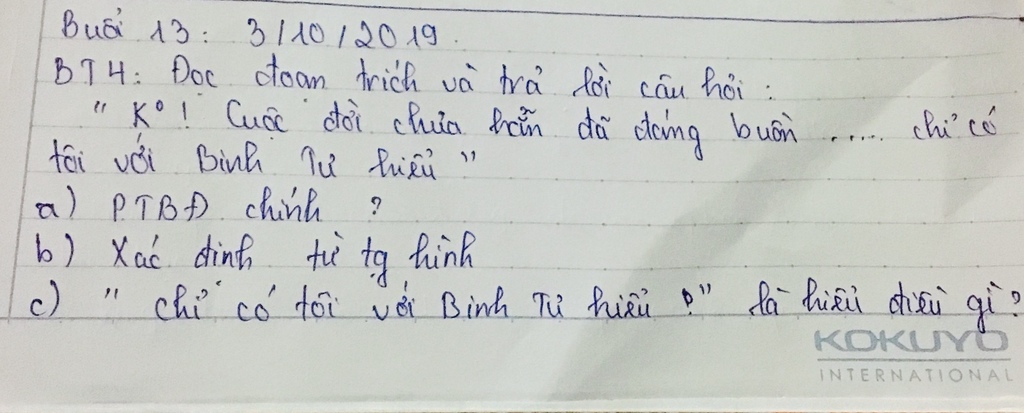 Buổi 13: 3/10/2019.
BT4: Đọc đoạn trích và trả lời câu hỏi:
" K°! Cuộc đời chưa hẳn đã đáng buồn ..... chỉ có
tôi với Binh Tư hiểu "
a) PTBĐ chính ?
b) Xác định từ tg hình
c) " chỉ có tôi với Binh Tư hiểu ?" là hiểu điều gì?
KOKUYO
INTERNATIONAL